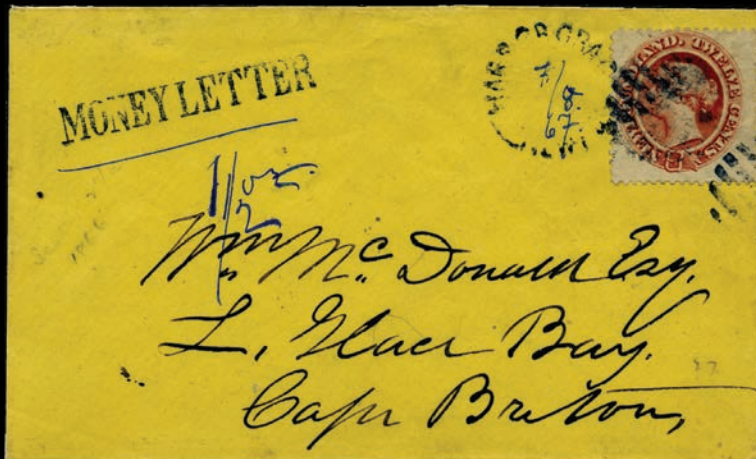 MONEY LETTER
HARBOR GRACE
TWELVE CENTS.
1/2 oz.
Wm. Mc. Donald Esq.
L. Glace Bay.
Cape Breton,